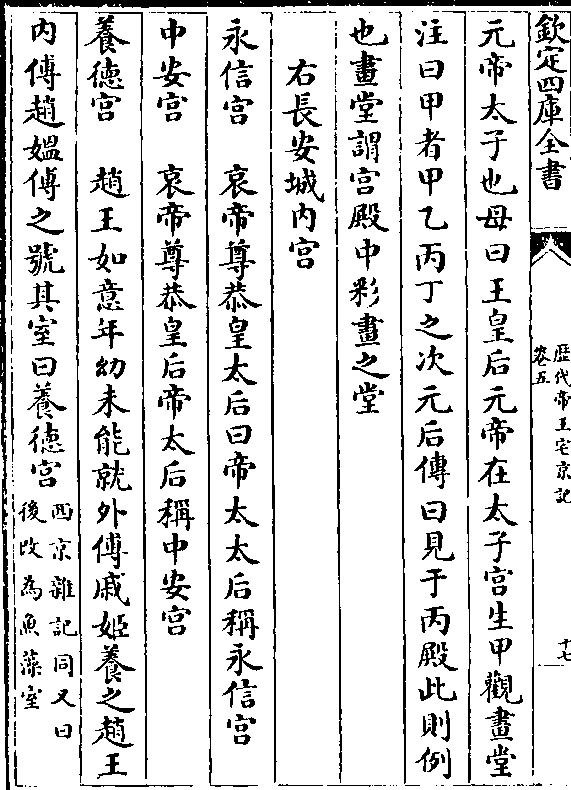 欽定四庫全書
歴代帝王宅京記
卷五
十七
元帝太子也母曰王皇后元帝在太子宫生甲觀畫堂
注曰甲者甲乙丙丁之次元后傳曰見于丙殿此則例
也畫堂謂宫殿中彩畫之堂
右長安城内宫
永信宫　哀帝尊恭皇太后曰帝太太后稱永信宫
中安宫　哀帝尊恭皇后帝太后稱中安宫
養徳宫　趙王如意年幼未能就外傅戚姬養之趙王
内傅趙媼傅之號其室曰養徳宫
西京雜記同又曰
後改為魚藻室